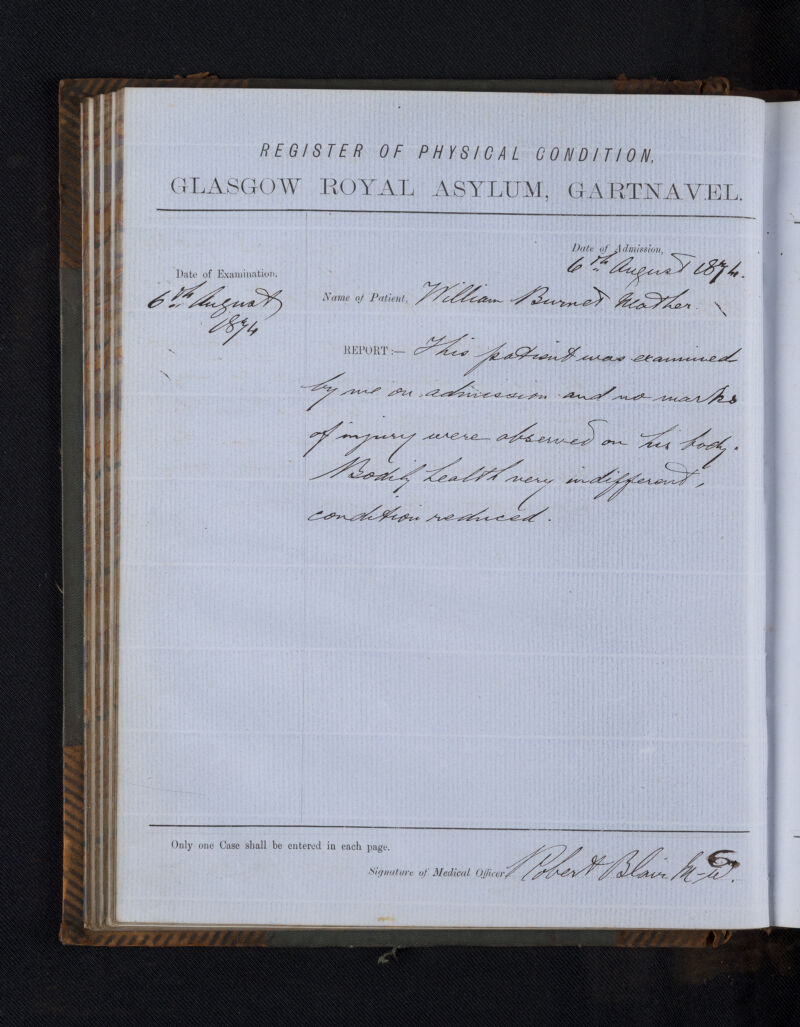 REGISTER OF PHYSICAL CONDITION,
GLASGOW ROYAL ASYLUM, GARTNAVEL.
Date of Admission,
6th August 1874.
Date of Examination.
6th August
1874
Name of Patient, William Burnet Mather.
REPORT:— This patient was examined
by me on admission and no marks
of injury were observed on his body.
Bodily health very indifferent,
condition reduced.
Only one Case shall be entered in each page.
Signature of Medical Officer, Robert Blair M.D.